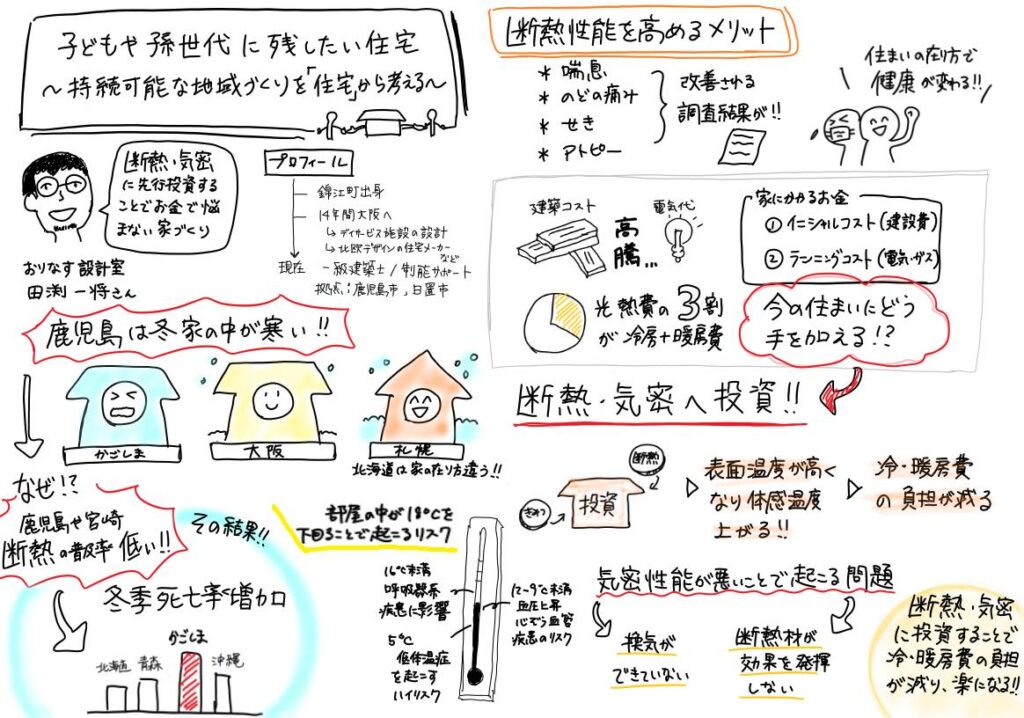 子どもや孫世代に残したい住宅
~持続可能な地域づくりを「住宅」から考える~
断熱・気密
に先行投資する
ことでお金で悩
まない家づくり
おりなす設計室
田渕一将さん
プロフィール
錦江町出身
14年間大阪へ
↳デイサービス施設の設計
↳北欧デザインの住宅メーカー
など
現在 一級建築士/制能サポート
拠点:「鹿児島市」日置市
鹿児島は冬家の中が寒い!!
かごしま
大阪
札幌
北海道は家の在り方違う!!
なぜ!?
鹿児島や宮崎
断熱の普及率低い!!
その結果!!
冬季死亡率増加
かごしま
北海道 青森 沖縄
部屋の中が18℃を
下回ることで起こるリスク
16℃未満
呼吸器系
疾患に影響
5℃
低体温症
を起こす
ハイリスク
12~9℃未満
血圧上昇
心ぞう血管
疾患のリスク
断熱性能を高めるメリット
* 喘息
* のどの痛み
* せき
* アトピー
改善される
調査結果が!!
住まいの在り方で
健康が変わる!!
建築コスト
電気代
高騰...
光熱費の3割
が冷房+暖房費
家にかかるお金
① イニシャルコスト(建設費)
② ランニングコスト(電気・ガス)
今の住まいにどう
手を加える!?
断熱・気密へ投資!!
断熱
きみつ
投資
▷ 表面温度が高く
なり体感温度
上がる!!
▷ 冷・暖房費
の負担が減る
気密性能が悪いことで起こる問題
換気が
できていない
断熱材が
効果を発揮
しない
断熱・気密
に投資することで
冷・暖房費の負担
が減り、楽になる!!